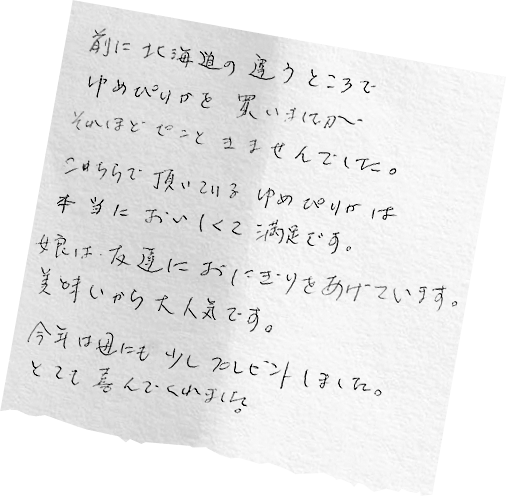 前に北海道の違うところで
ゆめぴりかを買いましたが
それほどピンときませんでした。
こちらで頂いているゆめぴりかは
本当においしくて満足です。
娘は友達におにぎりをあげています。
美味いから大人気です。
今年は母にも少しプレゼントしました。
とても喜んでくれました。